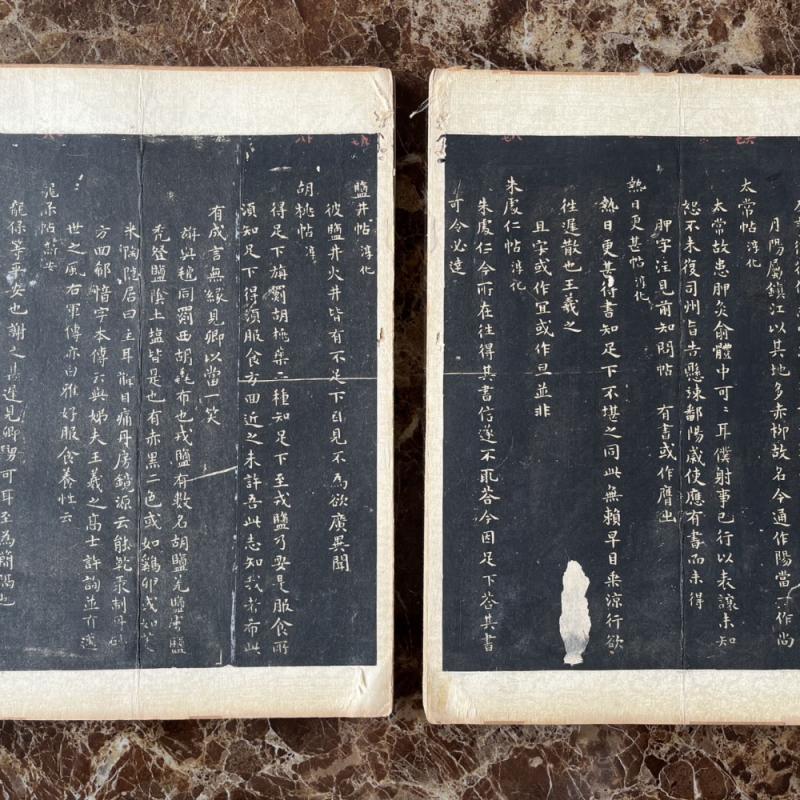 月陽屬鎮江以其地多赤柳故名今通作陽當一作尚
太常帖 淳化
太常故患胛灸俞體中可〻耳僕射事已行以表讓未知
恕不未復司州旨告懸速鄱陽歲使應有書而未得
胛字注見前知問帖 有書或作膺出
熱日更甚帖 淳化
熱日更甚得書知足下不堪之同此無賴早且乘涼行欲
往遲散也王羲之
且字或作宜或作旦並非
朱處仁帖 淳化
朱處仁今所在往得其書信遂不取荅今因足下荅其書
可令必達
鹽井帖 淳化
彼鹽井火井皆有不足下目見不為欲廣異聞
胡桃帖 淳
得足下旃罽胡桃藥二種知足下至戎鹽乃要是服食所
須知足下得須服食方回近之未許吾此志知我者希此
有成言無緣見卿以當一笑
旃與氈同罽西胡毳布也戎鹽有數名胡鹽羌鹽
禿登鹽陰土鹽皆是也有赤黑二色或如雞卵或如
陶隱居曰主耳 目痛丹房鏡源云能乾汞制丹砂
方回郗愔字本傳云與姊夫王羲之高士許詢並有邁
世之風右軍傳亦曰雅好服食養性云
龍保帖
龍保等平安也謝之甚遲見卿舅可耳至為簡隔也